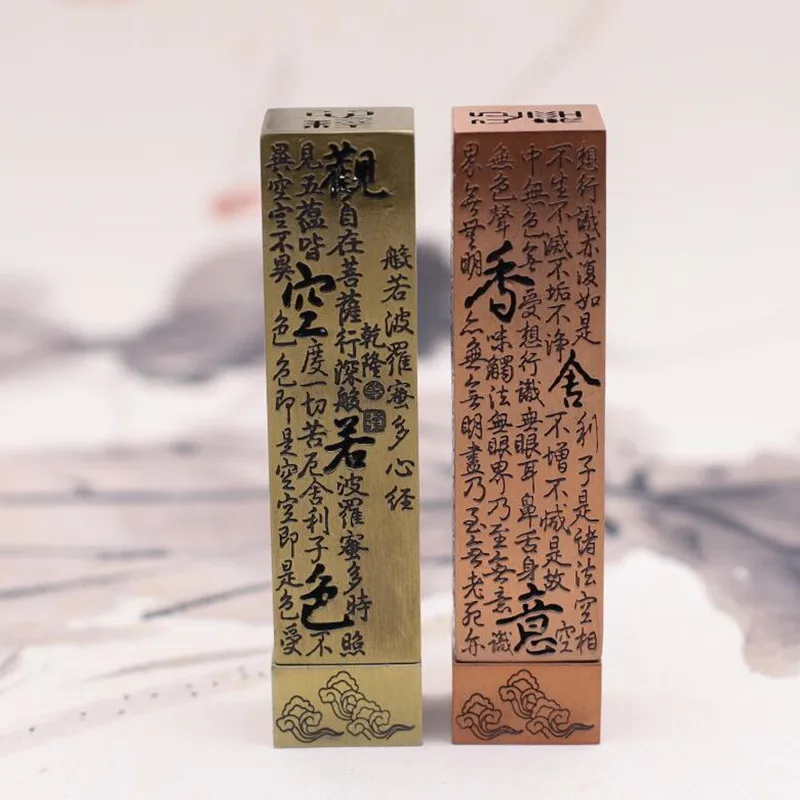 般若波羅蜜多心經
乾隆
觀自在菩薩行深般若波羅蜜多時照
見五蘊皆空度一切苦厄舍利子色不
異空空不異色色即是空空即是色受
想行識亦復如是舍利子是諸法空相
不生不滅不垢不净不增不減是故空
中無色無受想行識無眼耳鼻舌身意
無色聲香味觸法無眼界乃至無意識
界無無明亦無無明盡乃至無老死亦